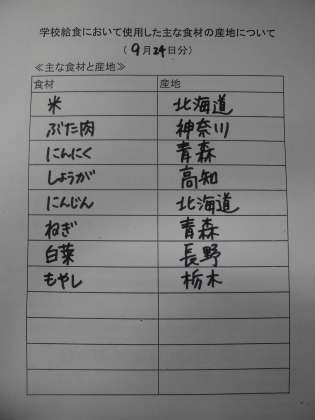 学校給食において使用した主な食材の産地について
(9月24日分)
≪主な食材と産地≫
食材 産地
米 北海道
ぶた肉 神奈川
にんにく 青森
しょうが 高知
にんじん 北海道
ねぎ 青森
白菜 長野
もやし 栃木